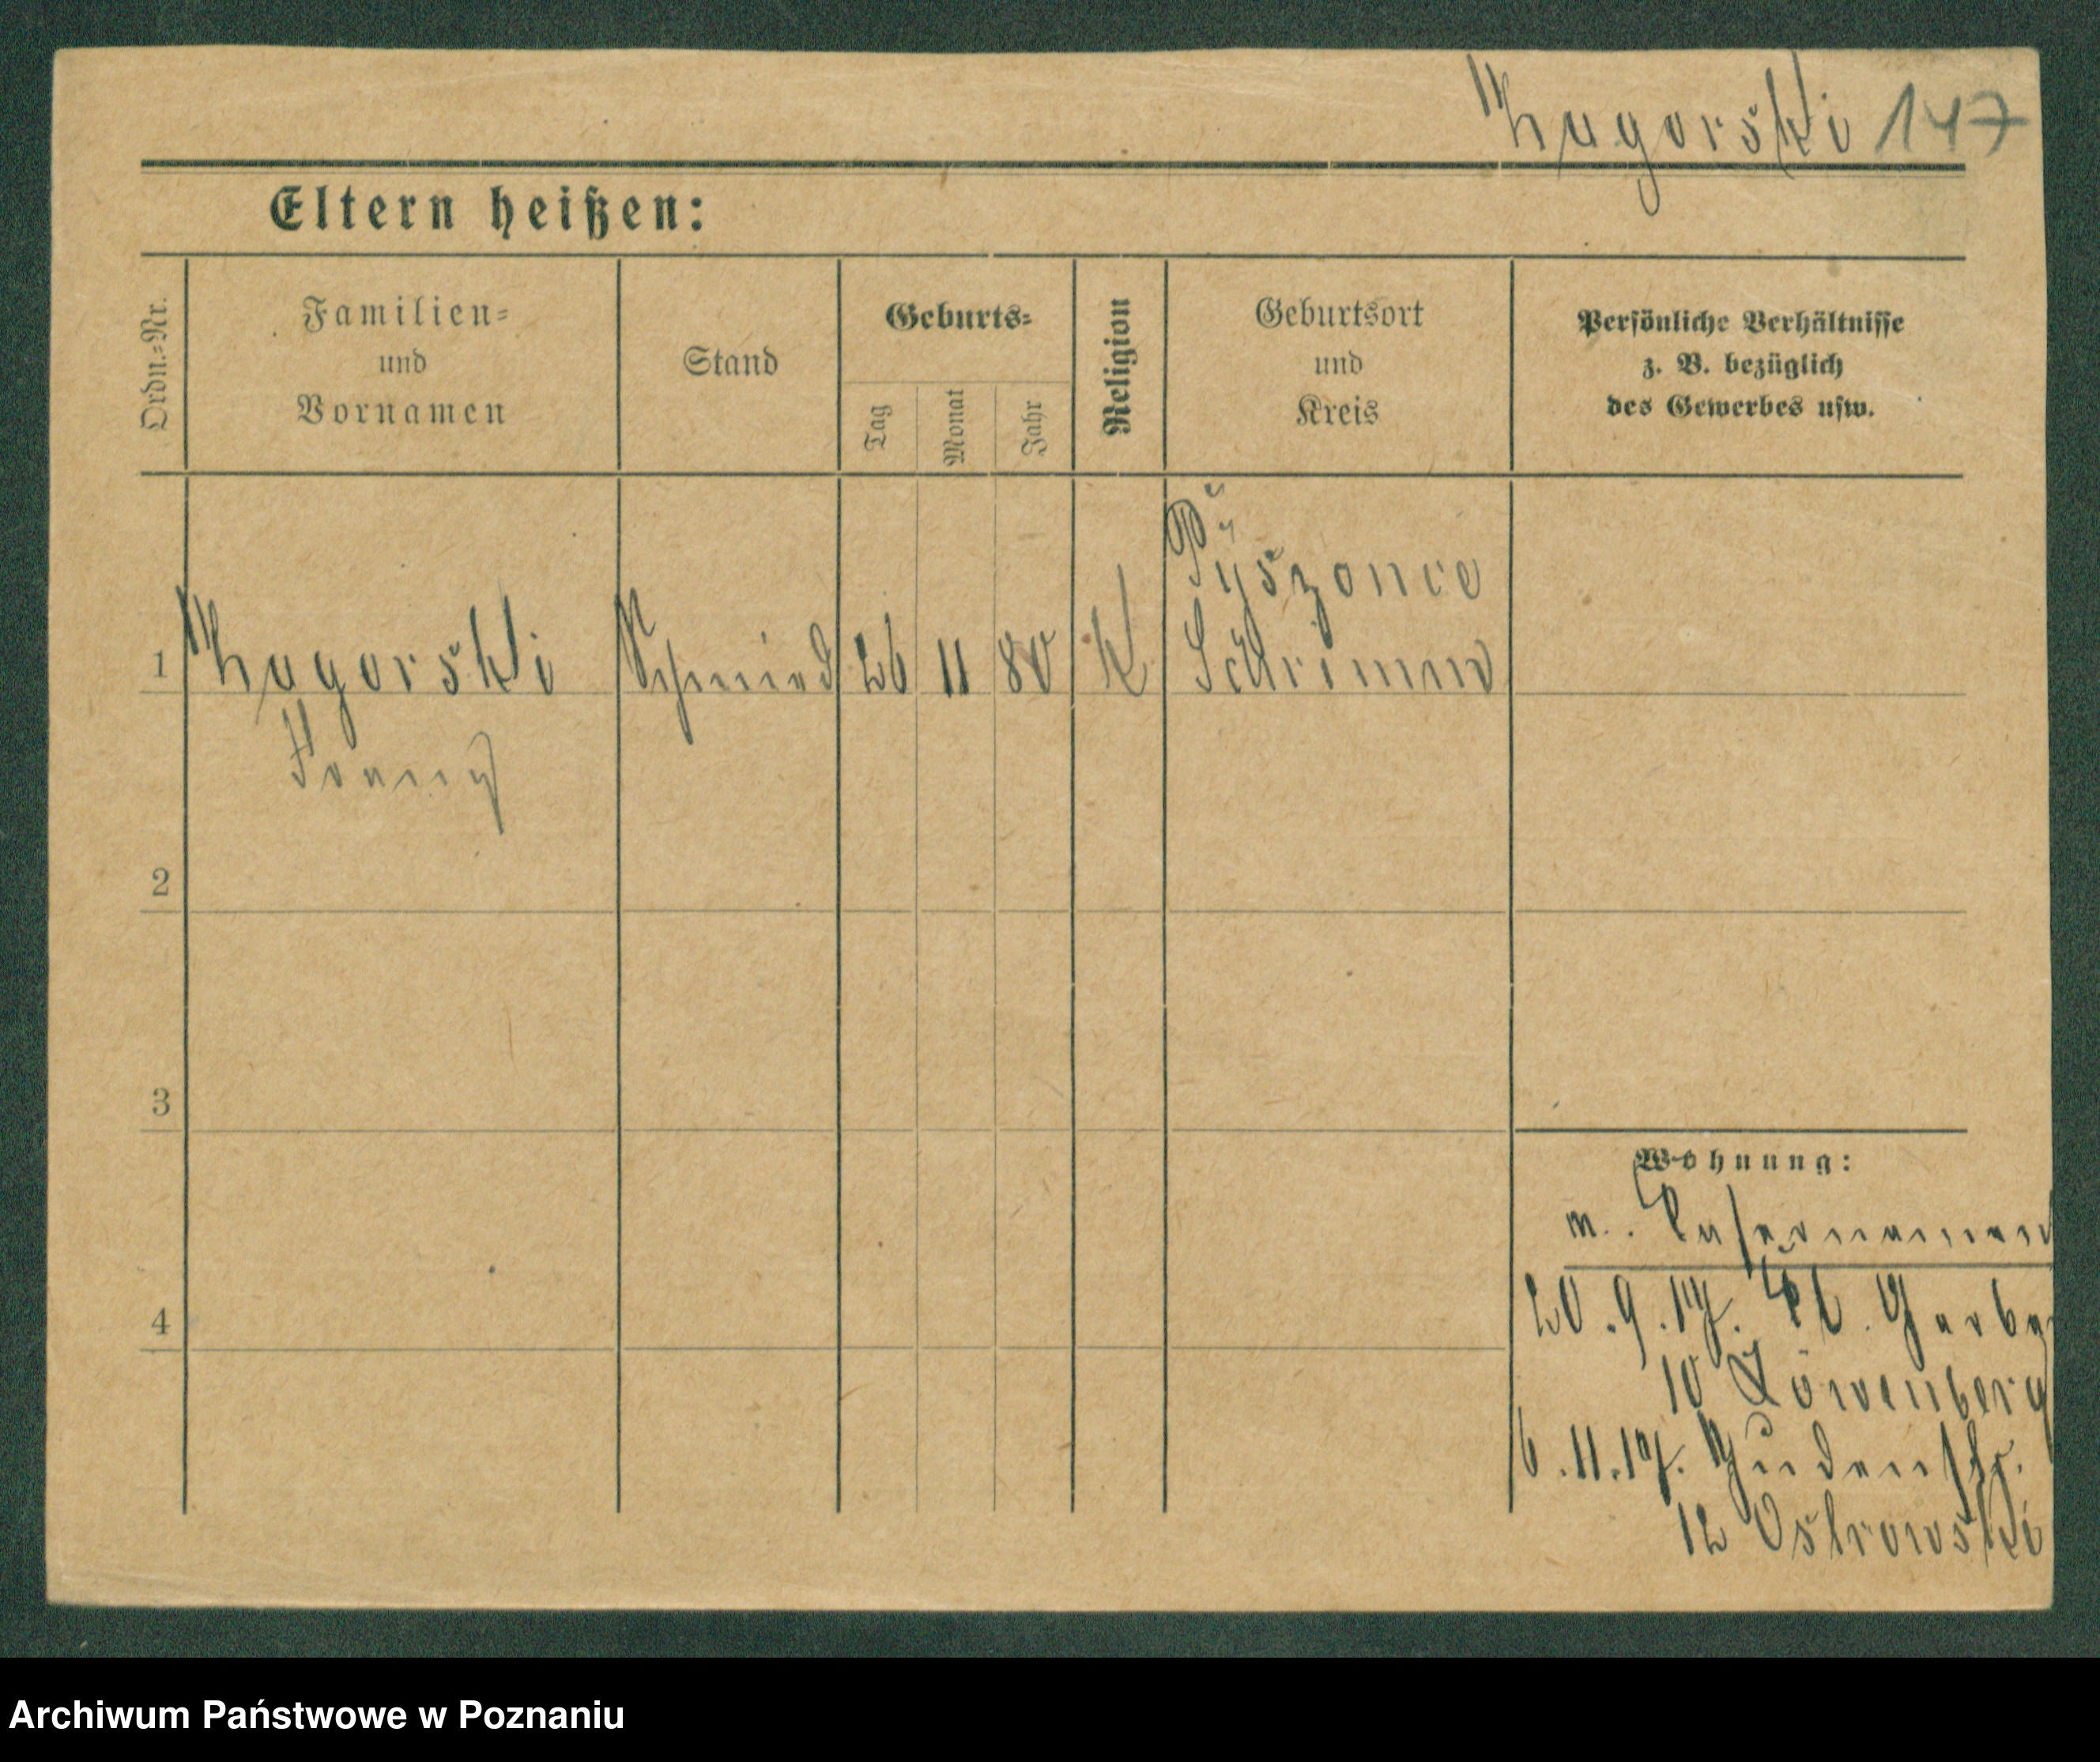 Zagorski 147
Eltern heißen:
Ordn.=Nr.
Familien=
und
Vornamen
Stand
Geburts=
Tag
Monat
Jahr
Religion
Geburtsort
und
Kreis
Persönliche Verhältnisse
z. B. bezüglich
des Gewerbes usw.
1
Zagorski
Franz
Schmied
26
11
80
K
Pyszonce
Schrimm
2
3
4
Wohnung:
20.9.17. Gerbe
10 Löwenberg
6.11.17. Judenstr.
12 Ostrowski
Archiwum Państwowe w Poznaniu